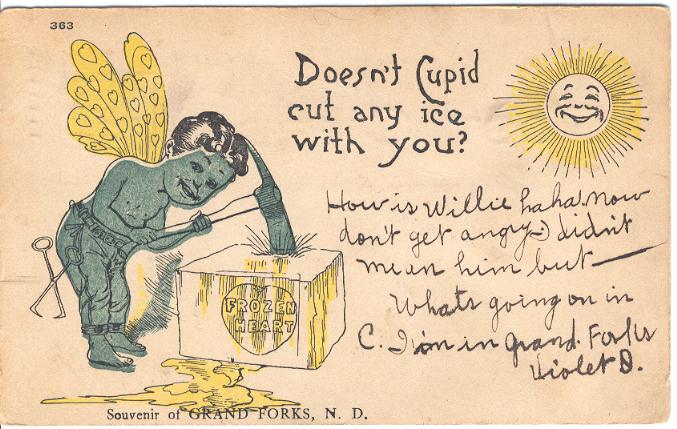 363
Doesn't Cupid
cut any ice
with you?
How is Willie ha ha. now
don't get angry I didn't
mean him but —
Whats going on in
C. I'm in Grand. Forks
Violet D.
FROZEN
HEART
Souvenir of GRAND FORKS, N. D.